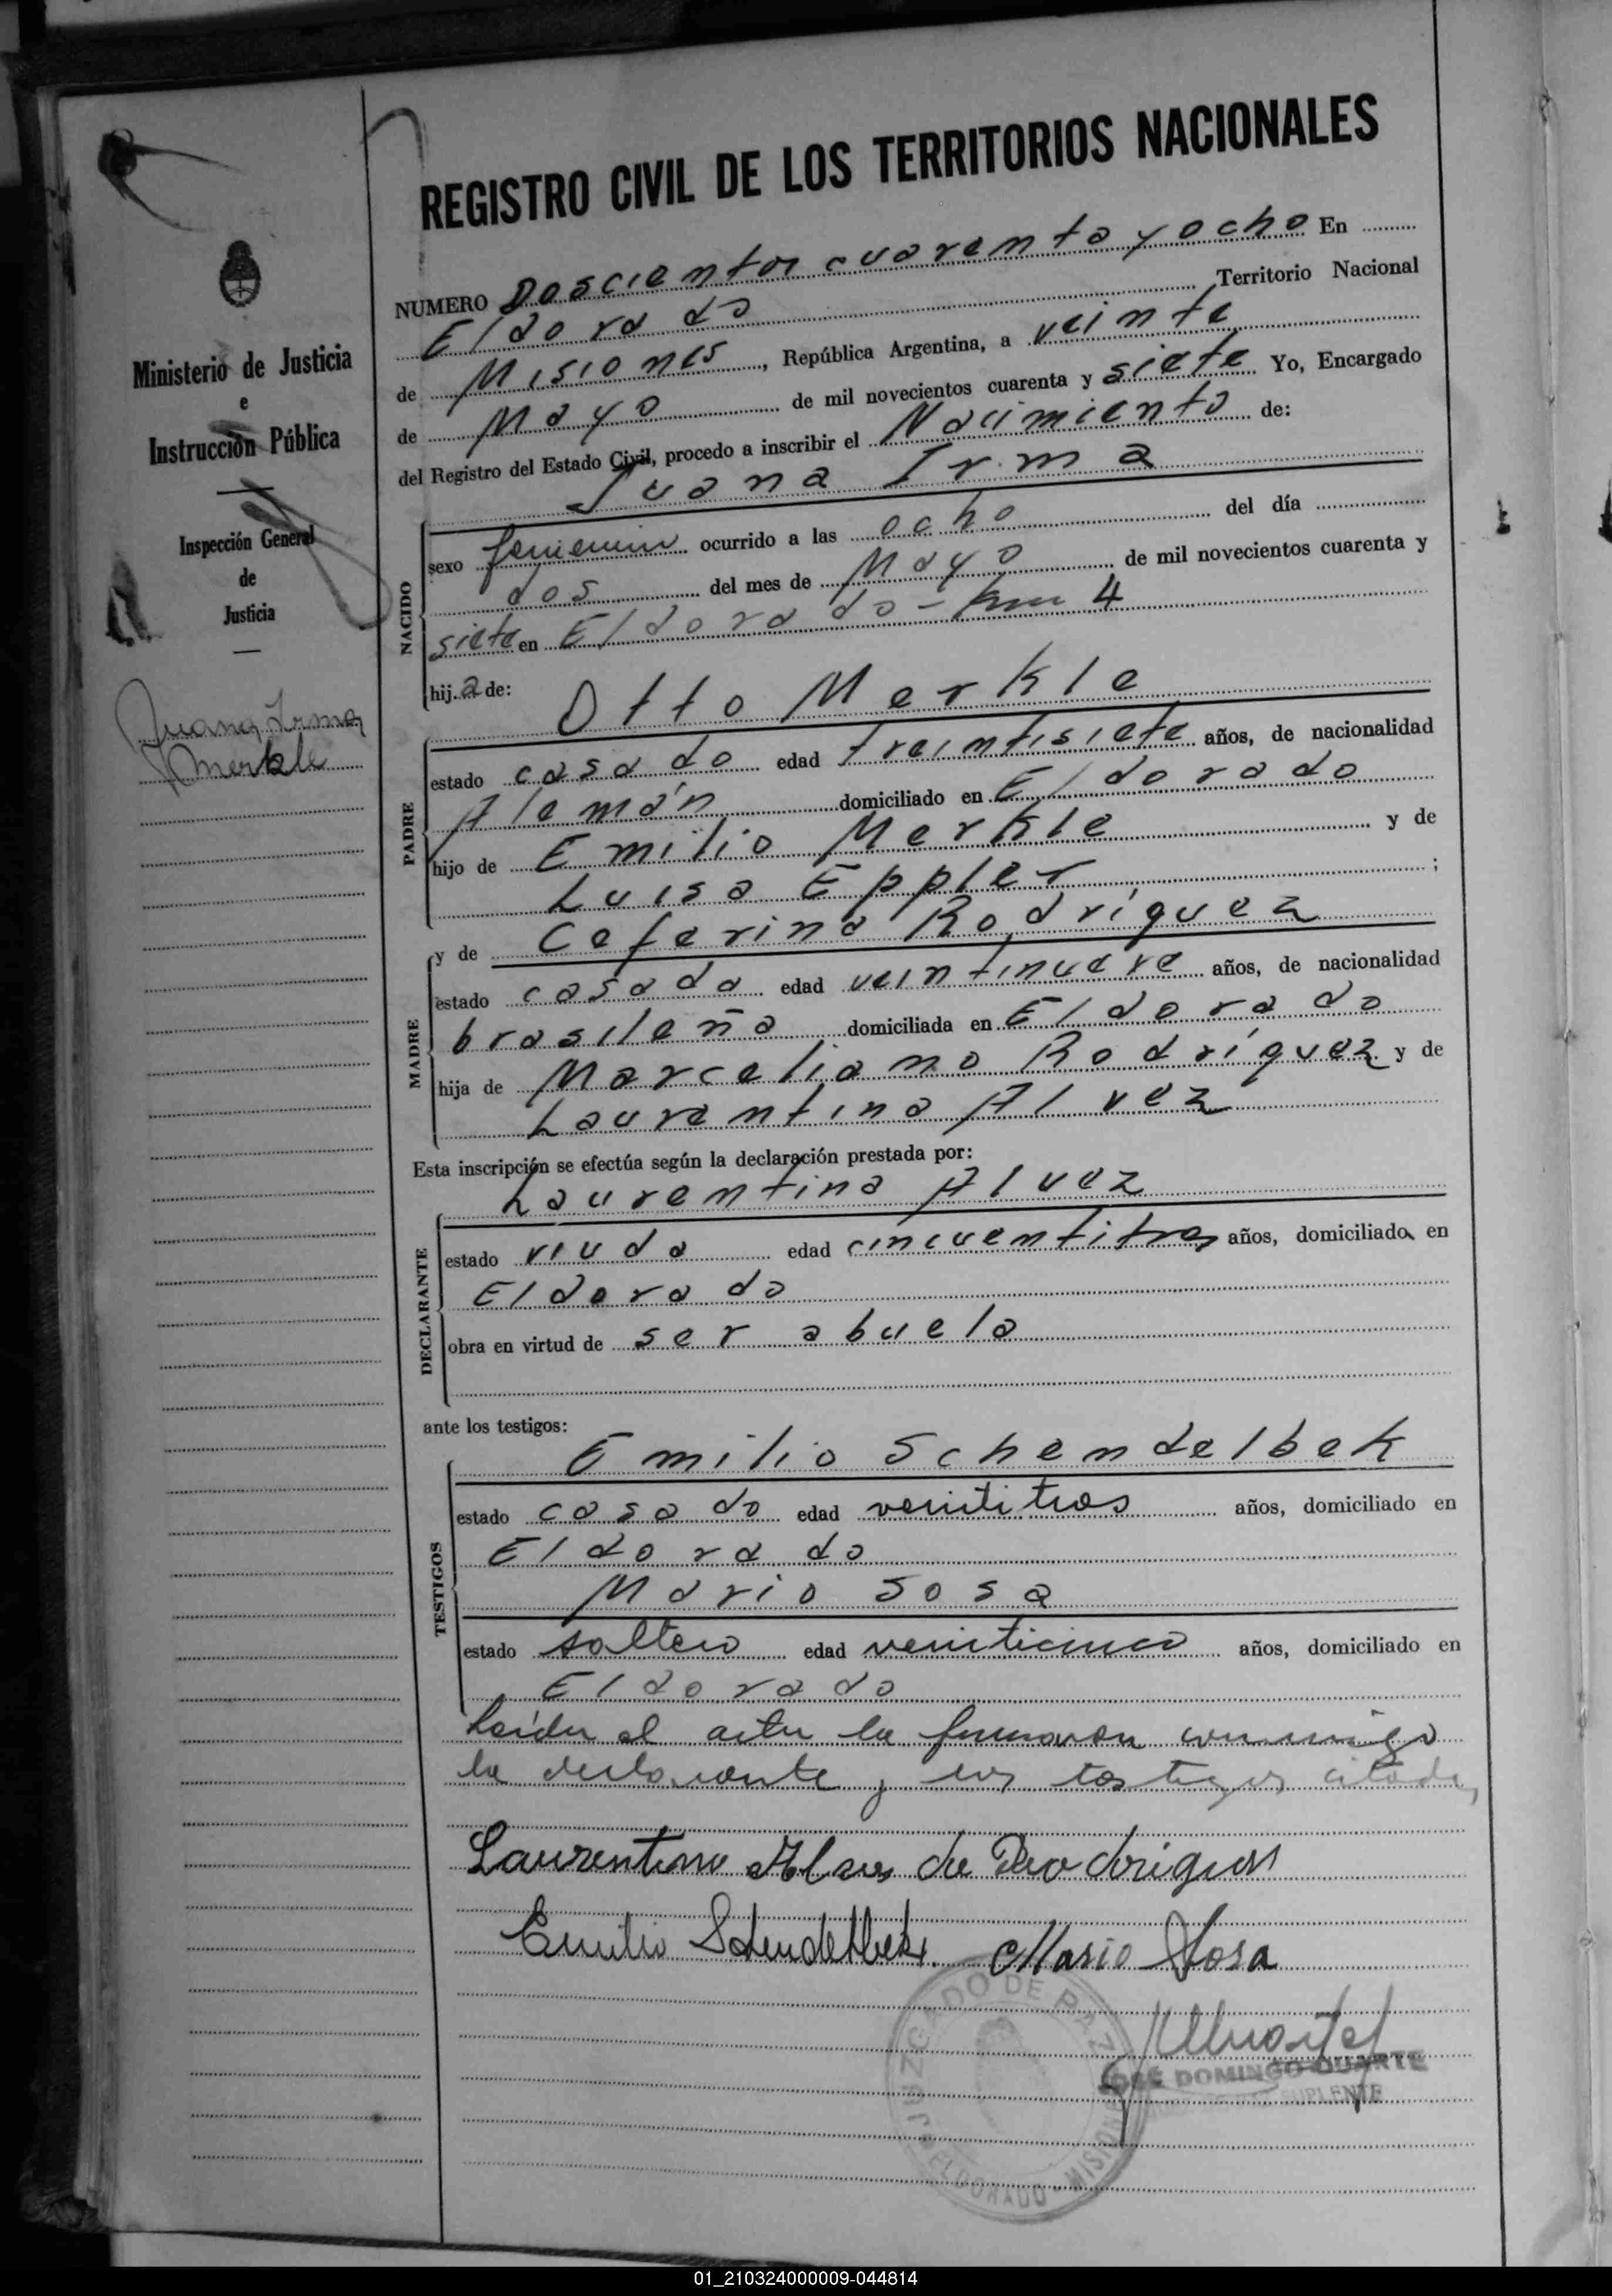 REGISTRO CIVIL DE LOS TERRITORIOS NACIONALES
Ministerio de Justicia
e
Instrucción Pública
Inspección General
de
Justicia
Juana Irma
Merkle
NUMERO Doscientos cuarenta y ocho En
Eldorado Territorio Nacional
de Misiones, República Argentina, a veinte
de Mayo de mil novecientos cuarenta y siete Yo, Encargado
del Registro del Estado Civil, procedo a inscribir el Nacimiento de:
Juana Irma
NACIDO
sexo femenino ocurrido a las ocho del día
dos del mes de Mayo de mil novecientos cuarenta y
siete en Eldorado - Km 4
hij.a de:
Otto Merkle
PADRE
estado casado edad treintisiete años, de nacionalidad
Alemán domiciliado en Eldorado
hijo de Emilio Merkle y de
Luisa Eppler ;
y de Ceferina Rodríguez
MADRE
estado casada edad veintinueve años, de nacionalidad
brasileña domiciliada en Eldorado
hija de Marceliano Rodríguez y de
Laurentina Alvez
Esta inscripción se efectúa según la declaración prestada por:
Laurentina Alvez
DECLARANTE
estado viuda edad cincuentitres años, domiciliada en
Eldorado
obra en virtud de ser abuela
ante los testigos:
Emilio Schendelbek
TESTIGOS
estado casado edad veintitres años, domiciliado en
Eldorado
Mario Sosa
estado soltero edad veinticinco años, domiciliado en
Eldorado
Leída el acta la firmaron conmigo
la declarante y los testigos citados
Laurentina de Rodrigues
Emilio Schendelbek. Mario Sosa
JUZGADO DE PAZ
ELDORADO - MISIONES
JOSÉ DOMINGO DUARTE
SUPLENTE
01_210324000009-044814